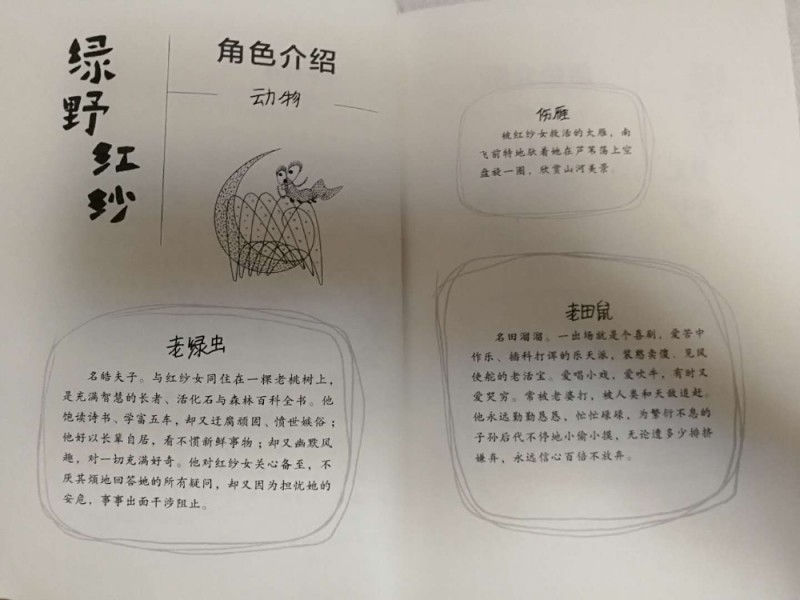 绿野红纱
角色介绍
动物
老绿虫
名皓夫子。与红纱女同住在一棵老桃树上，
是充满智慧的长者、活化石与森林百科全书。他
饱读诗书、学富五车，却又迂腐顽固、愤世嫉俗；
他好以长辈自居，看不惯新鲜事物；却又幽默风
趣，对一切充满好奇。他对红纱女关心备至，不
厌其烦地回答她的所有疑问，却又因为担忧她的
安危，事事出面干涉阻止。
伤雁
被红纱女救活的大雁，南
飞前特地驮着她在芦苇荡上空
盘旋一圈，欣赏山河美景。
老田鼠
名田溜溜。一出场就是个喜剧，爱苦中
作乐、插科打诨的乐天派，装憨卖傻、见风
使舵的老活宝。爱唱小戏，爱吹牛，有时又
爱哭穷。常被老婆打，被人类和天敌追赶。
他永远勤勤恳恳，忙忙碌碌，为繁衍不息的
子孙后代不停地小偷小摸，无论遭多少排挤
嫌弃，永远信心百倍不放弃。